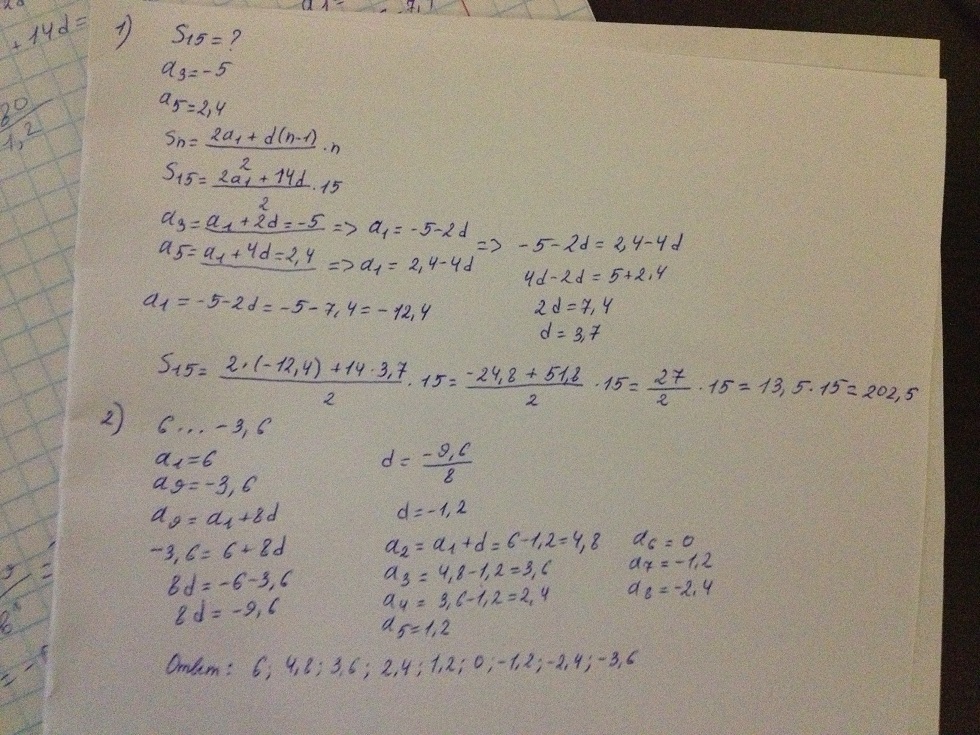 + 14d =
1)
S₁₅ = ?
a₃ = -5
a₅ = 2,4
Sn = (2a₁ + d(n-1))/2 · n
S₁₅ = (2a₁ + 14d)/2 · 15
a₃ = a₁ + 2d = -5 => a₁ = -5-2d
a₅ = a₁ + 4d = 2,4 => a₁ = 2,4-4d
=> -5-2d = 2,4-4d
4d-2d = 5+2,4
2d = 7,4
d = 3,7
a₁ = -5-2d = -5-7,4 = -12,4
S₁₅ = (2·(-12,4) + 14·3,7)/2 · 15 = (-24,8 + 51,8)/2 · 15 = 27/2 · 15 = 13,5·15 = 202,5
2)
6 ... -3,6
a₁ = 6
a₉ = -3,6
a₉ = a₁ + 8d
-3,6 = 6 + 8d
8d = -6-3,6
8d = -9,6
d = -9,6/8
d = -1,2
a₂ = a₁ + d = 6-1,2 = 4,8
a₃ = 4,8-1,2 = 3,6
a₄ = 3,6-1,2 = 2,4
a₅ = 1,2
a₆ = 0
a₇ = -1,2
a₈ = -2,4
Ответ: 6; 4,8; 3,6; 2,4; 1,2; 0; -1,2; -2,4; -3,6